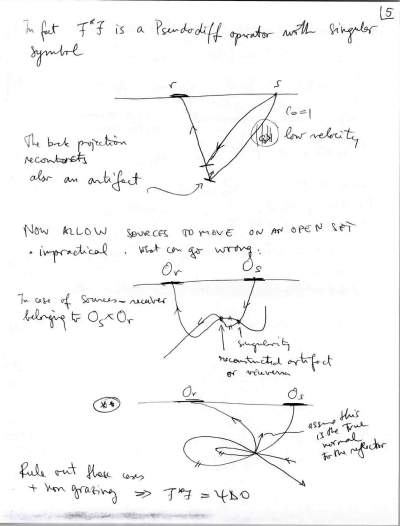 15
In fact F*F is a Pseudodiff operator with singular
symbol
r
s
C₀=1
low velocity
The back projection
reconstructs
also an artifact
NOW ALLOW SOURCES TO MOVE ON AN OPEN SET
• impractical. What can go wrong:
Or
Os
In case of sources-receiver
belonging to Os×Or
singularity
reconstructed artifact
or viceversa
(**)
Or
Os
assume this
is the true
normal
to the reflector
Rule out these cases
+ non grazing ⇒ F*F = ΨDO